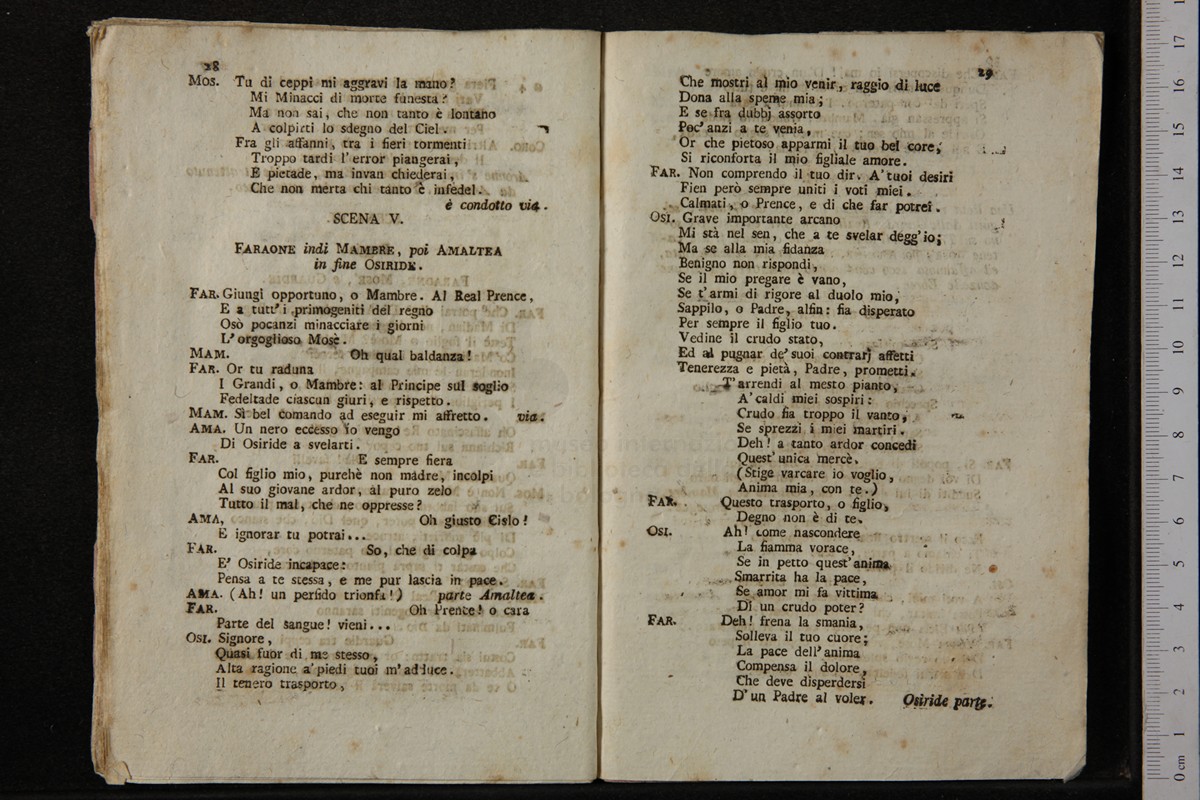 28
MOS. Tu di ceppi mi aggravi la mano?
Mi Minacci di morte funesta?
Ma non sai, che non tanto è lontano
A colpirti lo sdegno del Ciel.
Fra gli affanni, tra i fieri tormenti
Troppo tardi l'error piangerai,
E pietade, ma invan chiederai,
Che non merta chi tanto è infedel.
è condotto via.
SCENA V.
FARAONE indi MAMBRE, poi AMALTEA
in fine OSIRIDE.
FAR. Giungi opportuno, o Mambre. Al Real Prence,
E a tutt'i primogeniti del regno
Osò pocanzi minacciare i giorni
L'orgoglioso Mosè.
MAM. Oh qual baldanza!
FAR. Or tu raduna
I Grandi, o Mambre: al Principe sul soglio
Fedeltade ciascun giuri, e rispetto.
MAM. Sì bel comando ad eseguir mi affretto. via.
AMA. Un nero eccesso io vengo
Di Osiride a svelarti.
FAR. E sempre fiera
Col figlio mio, purehè non madre, incolpi
Al suo giovane ardor, al puro zelo
Tutto il mal, che ne oppresse?
AMA, Oh giusto Cielo!
E ignorar tu potrai...
FAR. So, che di colpa
E' Osiride incapace:
Pensa a te stessa, e me pur lascia in pace.
AMA. (Ah! un perfido trionfa!) parte Amaltea.
FAR. Oh Prence! o cara
Parte del sangue! vieni...
OSI. Signore,
Quasi fuor di me stesso,
Alta ragione a' piedi tuoi m'adduce.
Il tenero trasporto,
29
Che mostri al mio venir, raggio di luce
Dona alla speme mia;
E se fra dubbj assorto
Poc'anzi a te venia,
Or che pietoso apparmi il tuo bel core,
Si riconforta il mio figliale amore.
FAR. Non comprendo il tuo dir. A' tuoi desiri
Fien però sempre uniti i voti miei.
Calmati, o Prence, e di che far potrei.
OSI. Grave importante arcano
Mi stà nel sen, che a te svelar degg'io;
Ma se alla mia fidanza
Benigno non rispondi,
Se il mio pregare è vano,
Se t'armi di rigore al duolo mio,
Sappilo, o Padre, alfin: fia disperato
Per sempre il figlio tuo.
Vedine il crudo stato,
Ed al pugnar de' suoi contrarj affetti
Tenerezza e pietà, Padre, prometti.
T'arrendi al mesto pianto,
A' caldi miei sospiri:
Crudo fia troppo il vanto,
Se sprezzi i miei martiri.
Deh! a tanto ardor concedi
Quest'unica mercè.
(Stige varcare io voglio,
Anima mia, con te.)
FAR. Questo trasporto, o figlio,
Degno non è di te.
OSI. Ah! come nascondere
La fiamma vorace,
Se in petto quest'anima
Smarrita ha la pace,
Se amor mi fa vittima
Di un crudo poter?
FAR. Deh! frena la smania,
Solleva il tuo cuore;
La pace dell'anima
Compensa il dolore,
Che deve disperdersi
D'un Padre al voler. Osiride parte.